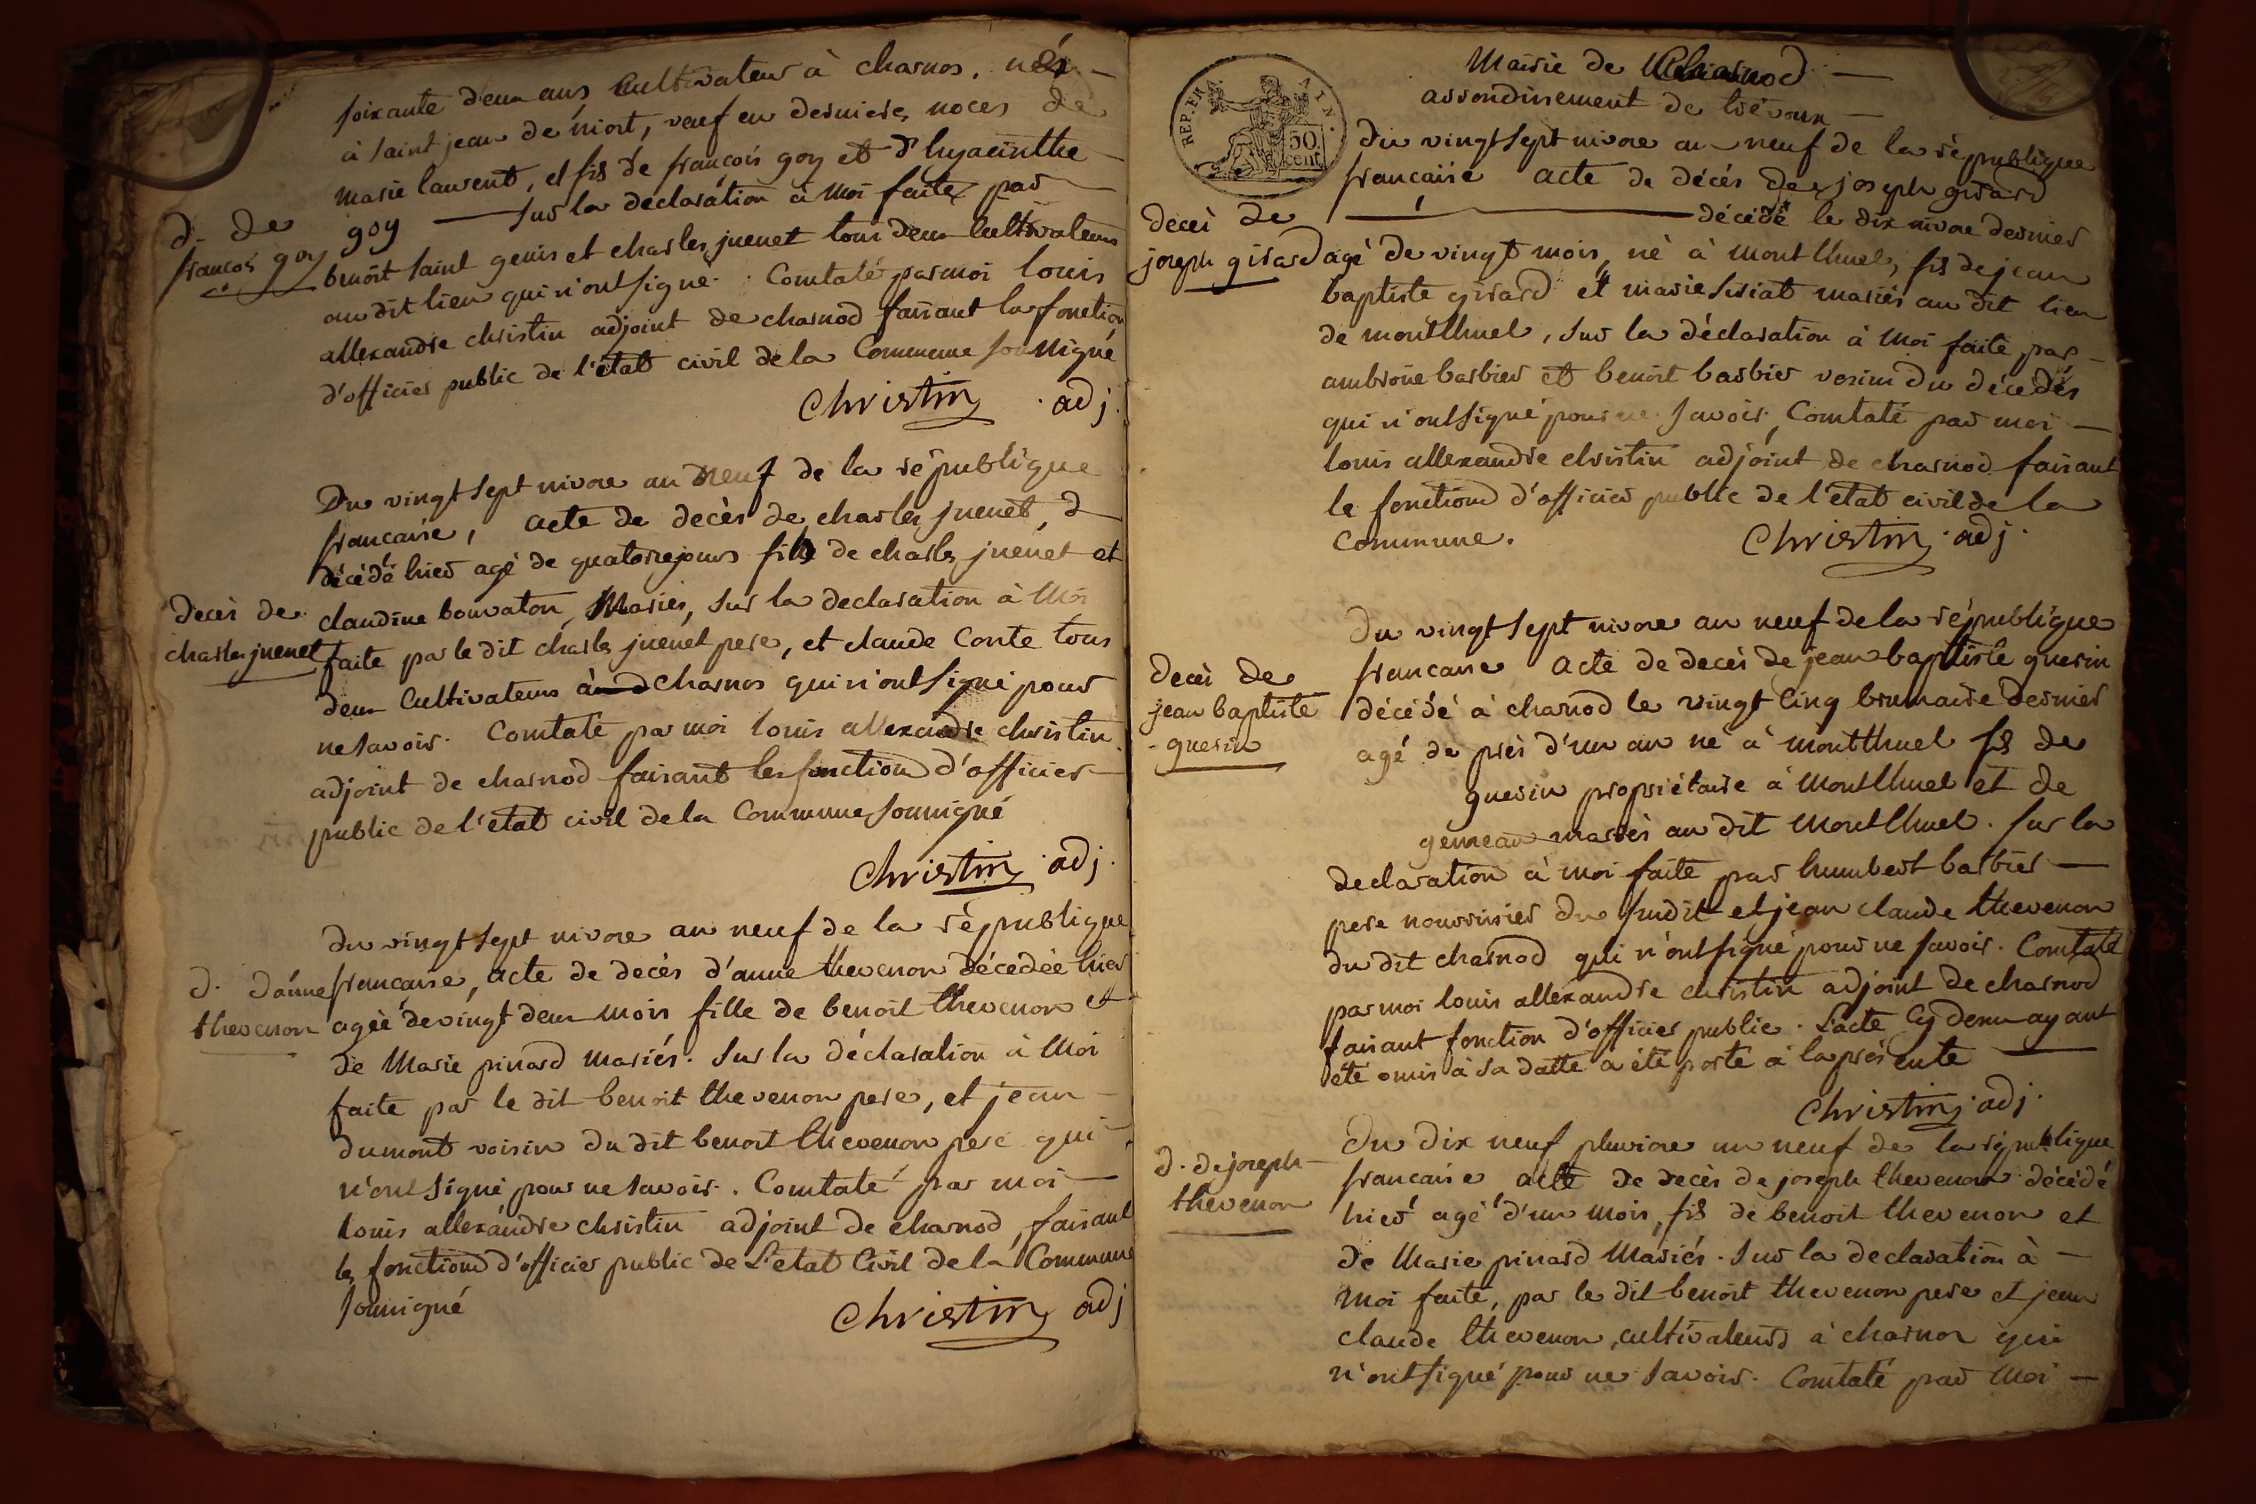 soixante deux ans Cultivateur à charnos. nés
à saint jean de niort, veuf en derniere noces de
marie laurent, et fils de françois goy et d'hyacinthe
d. de
françois goy
goy — sur la declaration à moi faite par
benoit saint genis et charles juenet tous deux Cultivateurs
au dit lieu qui n'ont signé. Constaté par moi louis
allexandre christin adjoint de charnod faisant la fonction
d'officier public de l'état civil de la Commune soussigné
Christin adj.
Du vingt sept nivose an neuf de la république
francaise, acte de decès de charles juenet, d
décédé hier agé de quatorze jours fils de charles juenet et
Decès de
charles juenet
claudine bouvaton, Mariés, sur la declaration à Moi
faite par le dit charles juenet pere, et claude Conte tous
deux Cultivateurs à charnos qui n'ont signé pour
ne savoir. Constaté par moi louis allexandre christin
adjoint de charnod faisant les fonction d'officier
public de l'etat civil de la Commune soussigné
Christin adj.
du vingt sept nivose an neuf de la république
d. d'anne
thevenon
francaise, acte de decès d'anne thevenon décedée hier
agée de vingt deux mois fille de benoit thevenon et
de Marie pinard mariés. Sur la déclaration à Moi
faite par le dit benoit thevenon pere, et jean
dumont voisin du dit benoit thevenon pere qui
n'ont signé pour ne savoir. Constaté par moi
louis allexandre christin adjoint de charnod, faisant
les fonctions d'officier public de L'etat Civil de la Commune
soussigné
Christin adj
REP. FR AIN.
50
cent.
Mairie de Charnod
arrondissement de trévoux
du vingt sept nivose an neuf de la république
francaise acte de décés de joseph girard
decès de
joseph girard
décédé le dix nivose dernier
agé de vingt mois, né à montlhuel, fils de jean
baptiste girard et marie siriat mariés au dit lieu
de montlhuel, sur la déclaration à moi faite par
ambroise barbier et benoit barbier voisins du décédés
qui n'ont signé pour ne savoir. Constaté par moi
louis allexandre christin adjoint de charnod faisant
le fonctions d'officier public de l'etat civil de la
commune.
Christin adj.
du vingt sept nivose an neuf de la république
decès de
jean baptiste
guerin
francaise acte de decès de jean baptiste guerin
décédé à charnod le vingt cinq brumaire dernier
agé de près d'un an né à montlhuel fils de
guerin propriétaire à montlhuel et de
gemeau mariés au dit montlhuel. sur la
declaration à moi faite par humbert barbier
pere nourrisier du susdit et jean claude thevenon
du dit charnod qui n'ont signé pour ne savoir. Constaté
par moi louis allexandre christin adjoint de charnod
faisant fonction d'officier public. L'acte cy dessus ayant
été omis à sa datte a été porté à la présente
Christin adj.
d. de joseph
thevenon
du dix neuf pluviose an neuf de la république
francaise acte de decès de joseph thevenon décédé
hier agé d'un mois, fils de benoit thevenon et
de Marie pinard Mariés. sur la declaration à
Moi faite, par le dit benoit thevenon pere et jean
claude thevenon, cultivateurs à charnos qui
n'ont signé pour ne savoir. Constaté par Moi